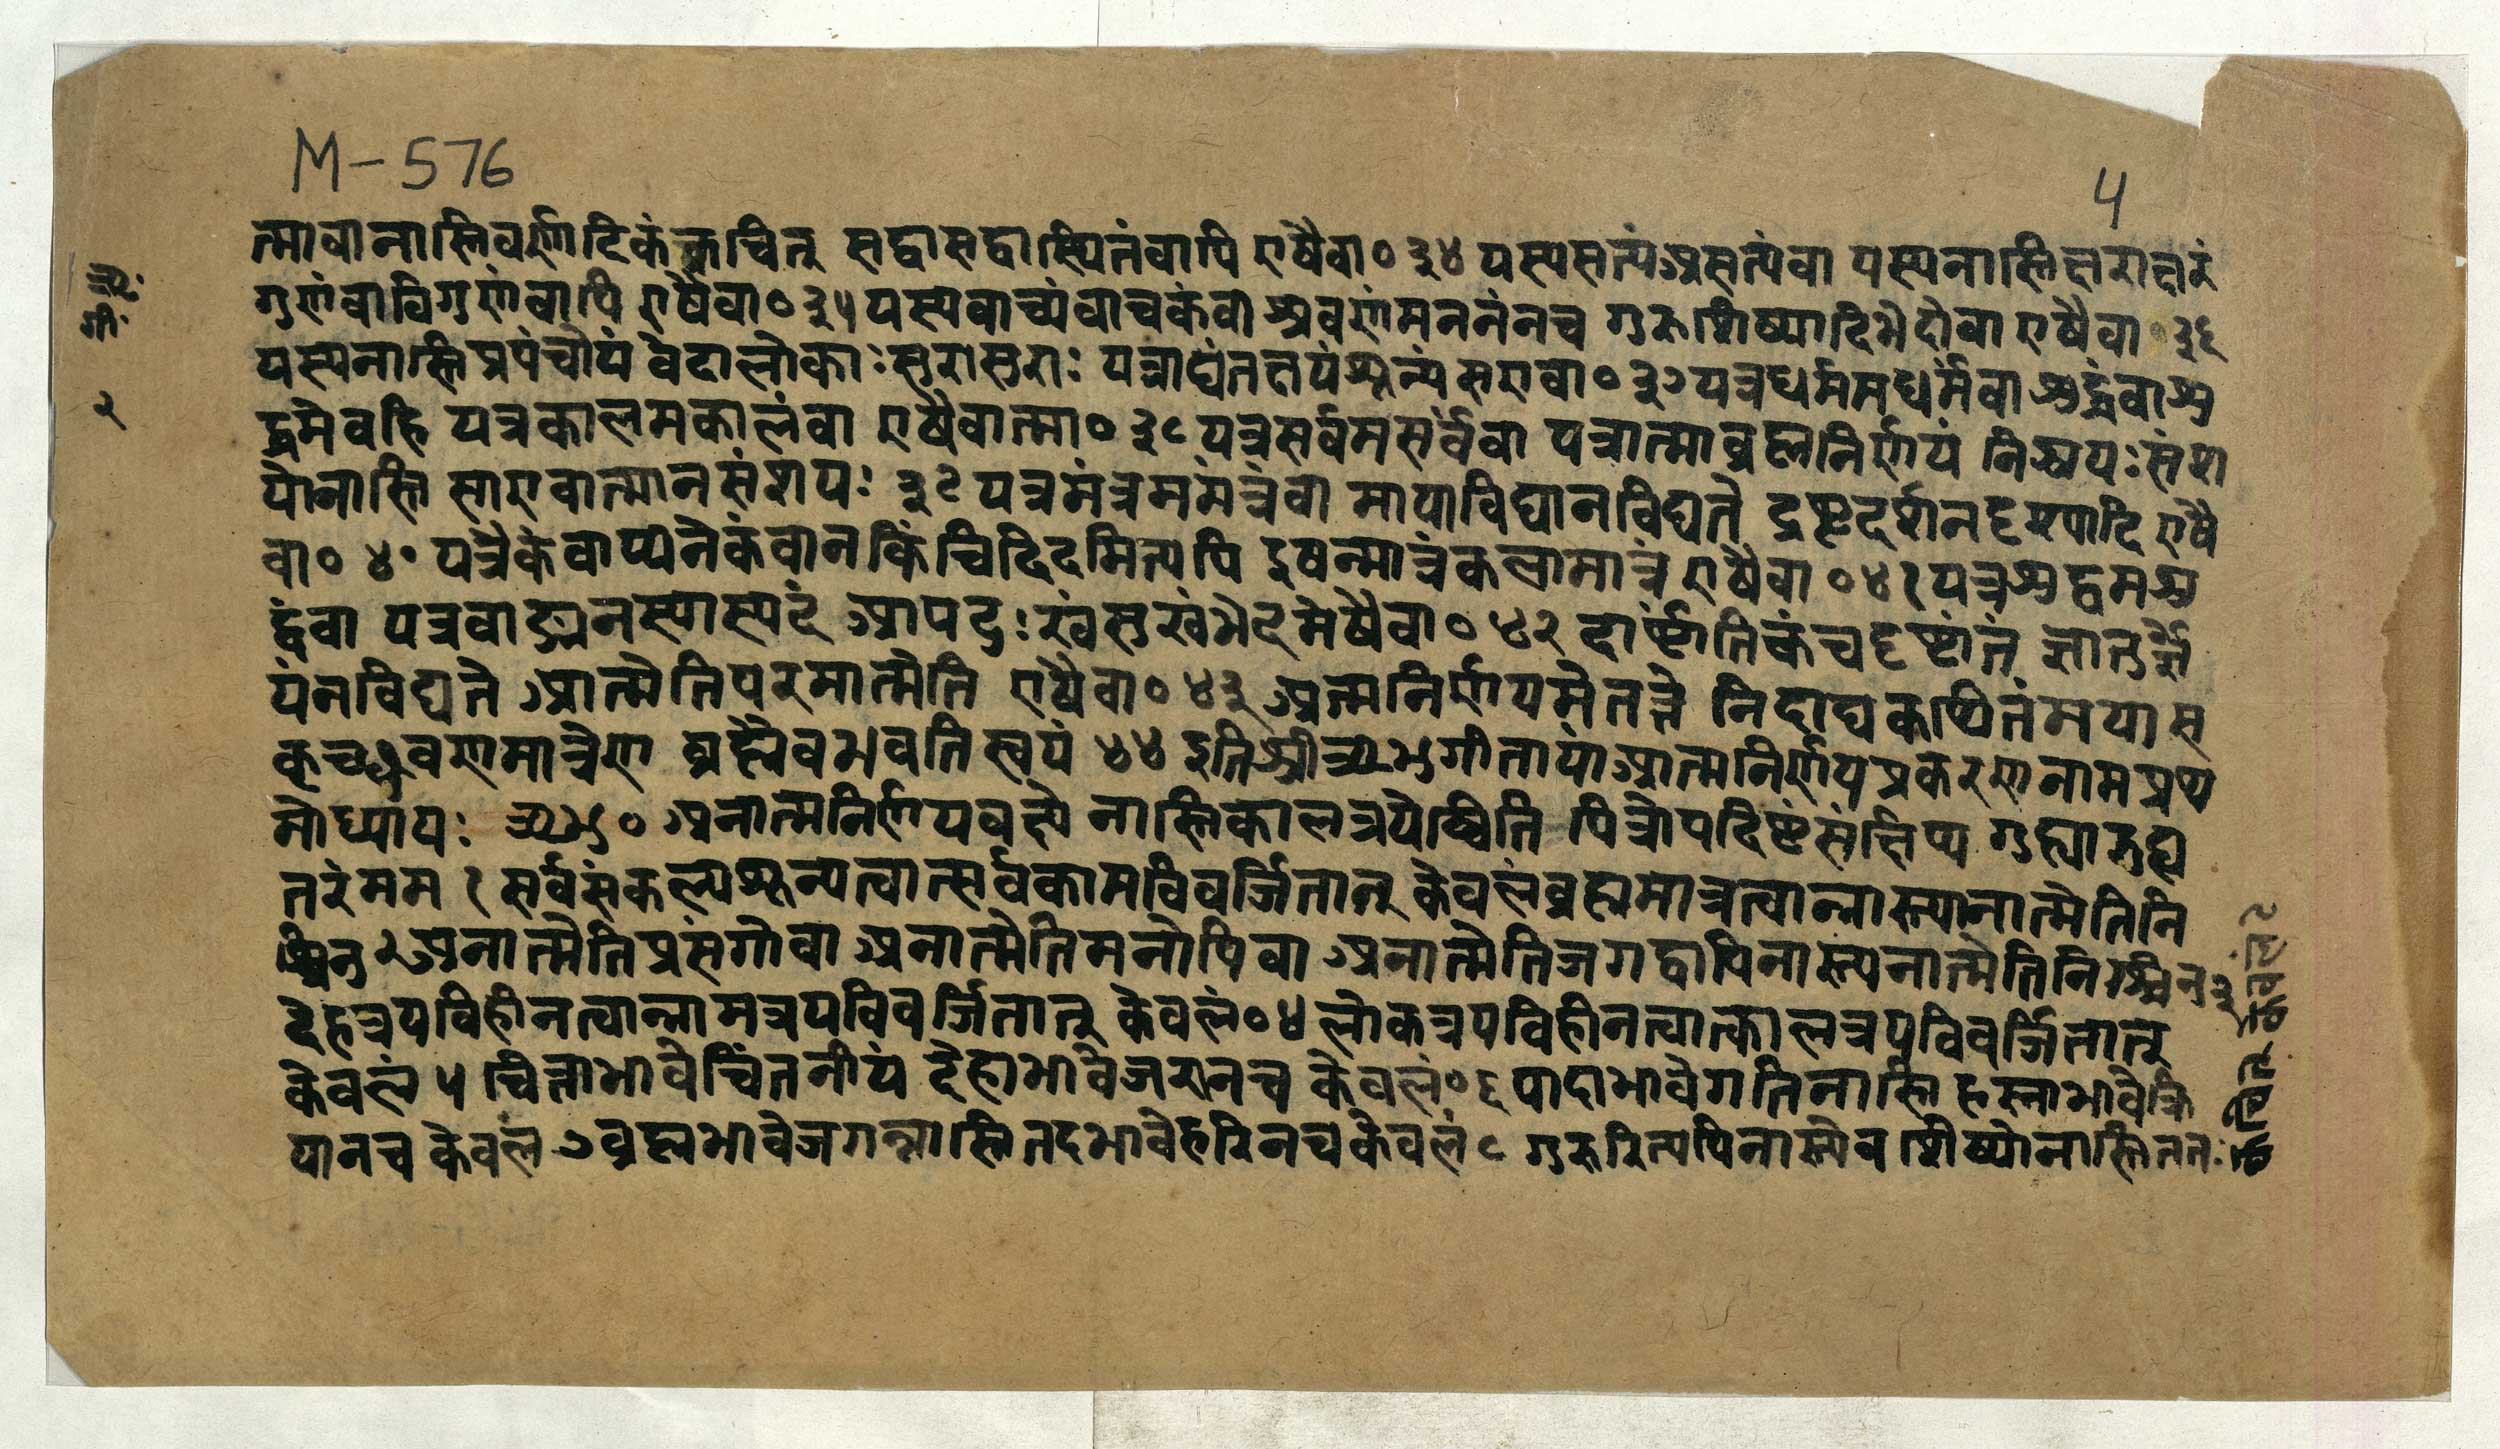 M-576
4
त्मावानास्तिवर्णादिकंक्वचित् सद्वासद्वास्थितंवापि एषैवा० ३४ यस्यसत्यंअसत्यंवा यस्यनास्तिक्षराक्षरं
ऋ॰
गुणंवाविगुणंवापि एषैवा० ३५ यस्यवाच्यंवाचकंवा श्रवणंमननंनच गुरुशिष्यादिभेदोवा एषैवा० ३६
गी॰
यस्यनास्तिप्रपंचोयं वेदालोकाःसुरासुराः यत्राद्यंतक्षयंशून्यं सएवा० ३७ यत्रधर्ममधर्मंवा शुद्धंवाशु
२
द्धमेवहि यत्रकालमकालंवा एषैवात्मा० ३८ यत्रसर्वमसर्वंवा यत्रात्माब्रह्मनिर्णयं निश्चयःसंश
योनास्ति सएवात्मानसंशयः ३९ यत्रमंत्रममंत्रंवा मायाविद्यानविद्यते द्रष्टृदर्शनदृश्यादि एषै
वा० ४० यत्रैकंवाप्यनेकंवानकिंचिदिदमित्यपि इषन्मात्रंकलामात्रं एषैवा० ४१ यत्रश्रद्धमश्र
द्धंवा यत्रवाङ्मनस्यास्पदं आपदुःखंसुखंभेदमेषैवा० ४२ दार्ष्टांतिकंचदृष्टांतं ज्ञातुर्ज्ञे
यंनविद्यते आत्मेतिपरमात्मेति एषैवा० ४३ आत्मनिर्णयमेतत्ते निदाघकथितंमया स
कृच्छ्रवणमात्रेण ब्रह्मैवभवतिस्वयं ४४ इतिश्रीऋभुगीतायांआत्मनिर्णयप्रकरणनामप्रथ
मोध्यायः ऋभु० अनात्मनिर्णयवक्ष्ये नास्तिकालत्रयेष्विति पित्रोपदिष्टंसंक्षिप्य गुह्याद्गुह्य
तरंमम १ सर्वसंकल्पशून्यत्वात्सर्वकामविवर्जितात् केवलंब्रह्ममात्रत्वान्नास्त्यनात्मेतिनि
श्चिनु २ अनात्मेतिप्रसंगोवा अनात्मेतिमनोपिवा अनात्मेतिजगद्वापिनास्त्यनात्मेतिनिश्चिनु ३
देहत्रयविहीनत्वान्नामत्रयविवर्जितात् केवलं० ४ लोकत्रयविहीनत्वात्कालत्रयविवर्जितात्
केवलं ५ चित्ताभावेचिंतनीयं देहाभावेजरानच केवलं० ६ पादाभावेगतिनास्ति हस्ताभावेक्रि
यानच केवलं ७ ब्रह्मभावेजगन्नास्ति तदभावेहरिनच केवलं ८ गुरुरित्यपिनास्त्येव शिष्योनास्तिततः